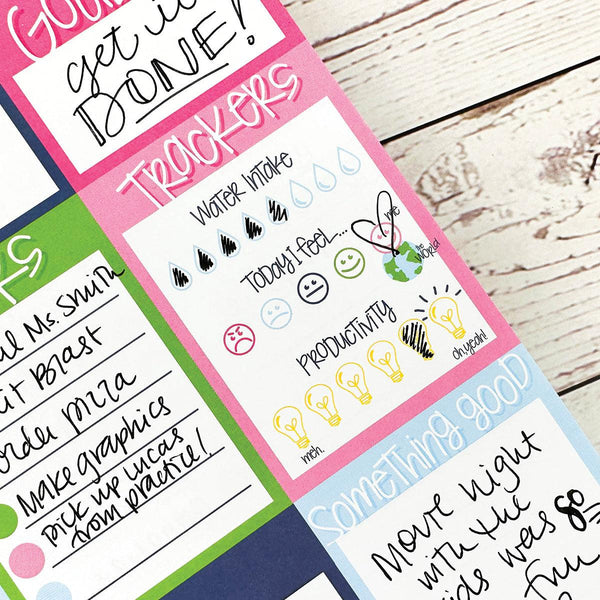 get it
DONE!
TRACKERS
Water Intake
Today I feel...
me
the World
PRODUCTIVITY
meh.
oh, yeah!
Ms. Smith
Blast
order pizza
Make graphics
pick up Lucas
from practice!
Something Good
Movie night
with the
was so
fun